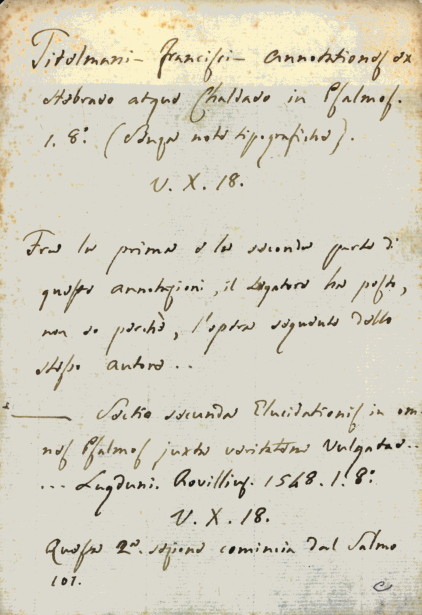 Titelmani - Francisci - Annotationes ex
Hebraeo atque Chaldaeo in Psalmos.
1. 8.° (Senza note tipografiche).
V. X. 18.
Fra la prima e la seconda parte di
queste annotazioni, il Legatore ha posto,
non so perchè, l'opera seguente dello
stesso autore..
2 ——— Sectio secunda Elucidationis in om-
nes Psalmos juxta veritatem Vulgatae..
... Lugduni. Rovillius. 1548. 1. 8.°
V. X. 18.
Questa 2a. sezione comincia dal Salmo
101.